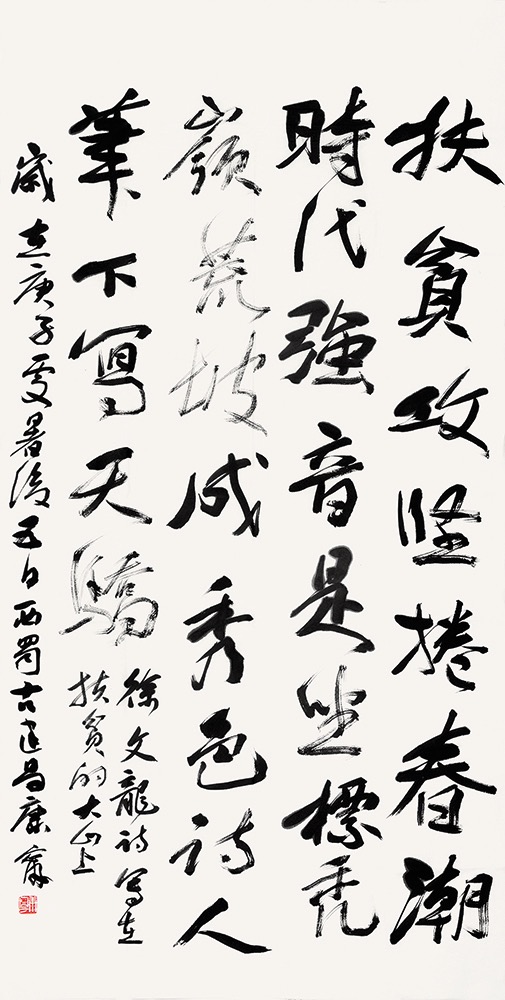 扶貧攻坚捲春潮
時代強音是坐標禿
嶺荒坡成秀色诗人
筆下寫天驕
徐文龍诗写在
扶贫的大山上
歲在庚子處暑後五日西蜀古建昌康甯